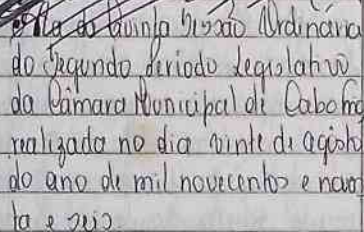 Ata da Quinta Sessão Ordinária
do Segundo Período Legislativo
da Câmara Municipal de Cabo
realizada no dia vinte de agosto
do ano de mil novecentos e noven
ta e seis.